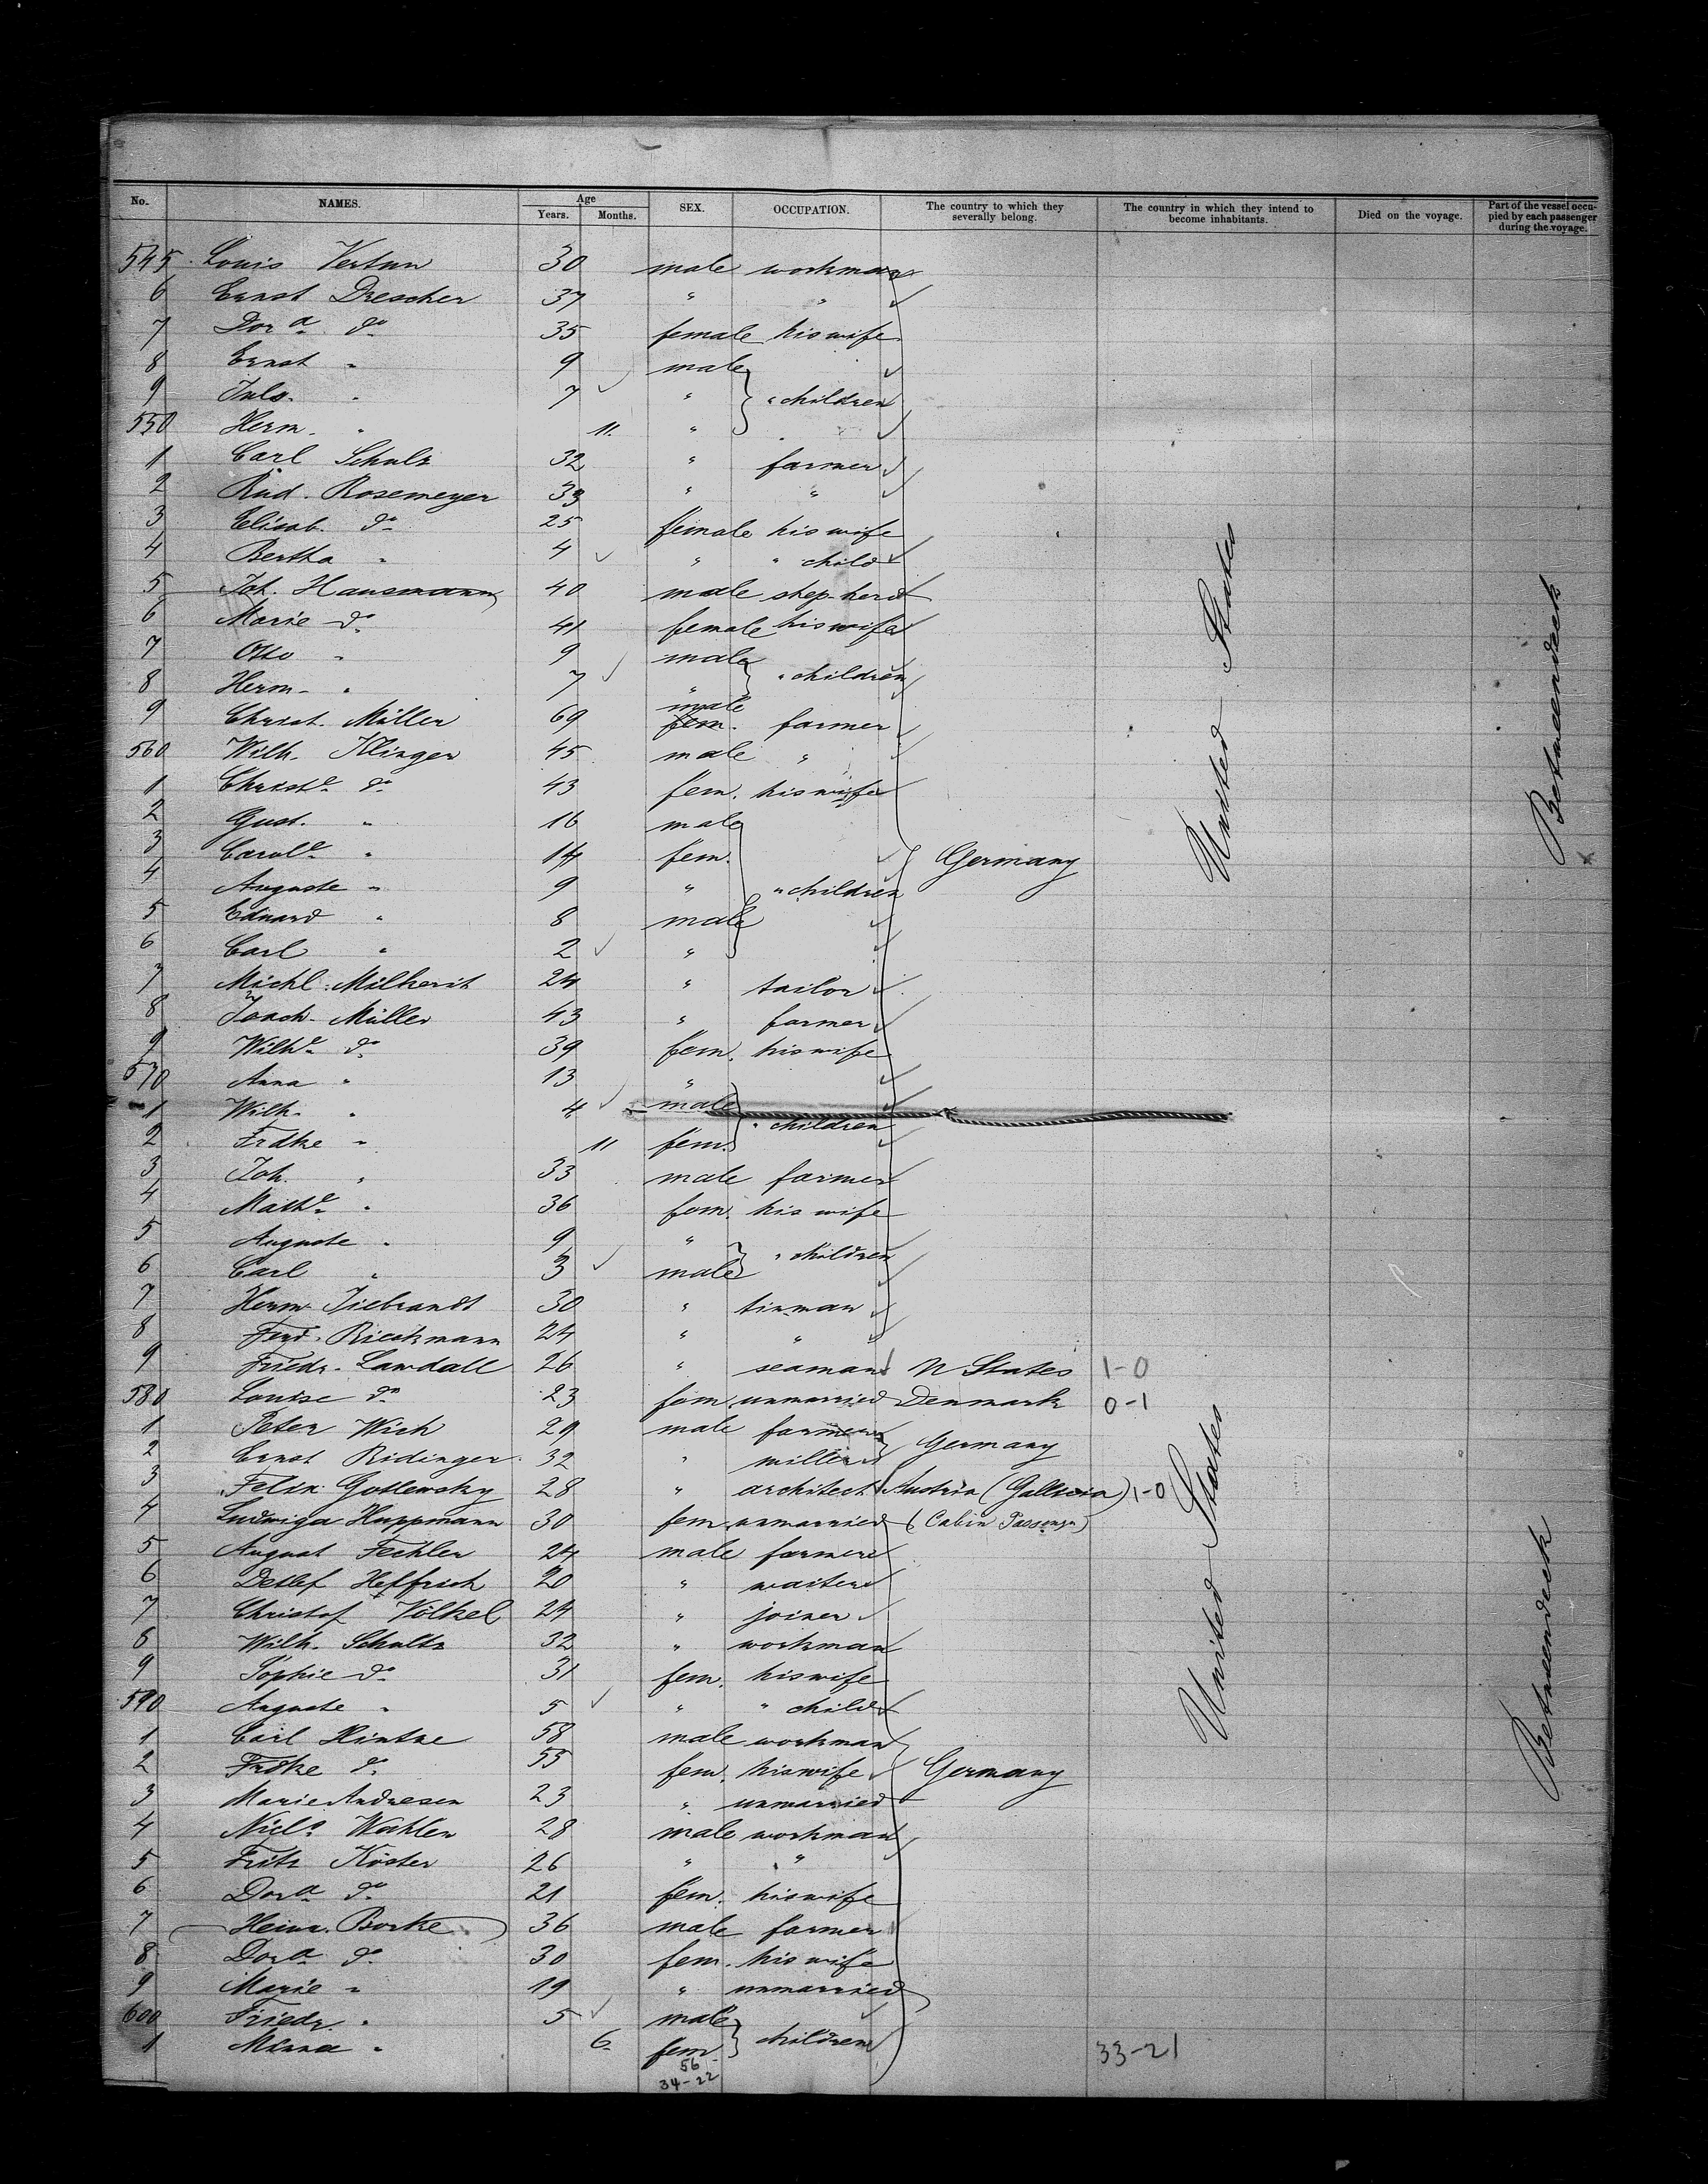 No. NAMES. Age Years. Months. SEX. OCCUPATION. The country to which they severally belong. The country in which they intend to become inhabitants. Died on the voyage. Part of the vessel occupied by each passenger during the voyage.
545 Louis Vertun 30 male workman
6 Ernst Drescher 37 " "
7 Dora do 35 female his wife
8 Ernst " 9 male
9 Juls. " 7 " " children
550 Herm. " 11. "
1 Carl Schulz 32 " farmer
2 Rud. Rosemeyer 33 " "
3 Elisab. do 25 female his wife
4 Bertha " 4 " " child
5 Joh. Hausmann 40 male shep-herd
6 Marie do 41 female his wife
7 Otto " 9 male
8 Herm. " 7 " " children
9 Christ. Müller 69 male fem. farmer
560 Wilh. Klinger 45 male "
1 Christe do 43 fem. his wife
2 Gust. " 16 male
3 Carole " 14 fem. Germany
4 Auguste " 9 " " children
5 Eduard " 8 male
6 Carl " 2 "
7 Michl. Milkerit 24 " tailor
8 Joach. Müller 43 " farmer
9 Wilhe do 39 fem. his wife
570 Anna " 13 "
1 Wilh. " 4 male " children
2 Frdke " 11 fem.
3 Joh. " 33 male farmer
4 Mathe " 36 fem. his wife
5 Auguste " 9 " " children
6 Carl " 3 male
7 Herm. Tiebrandt 30 " tinman
8 Ferd. Rieckmann 24 " "
9 Friedr. Lawdall 26 " seaman U States 1-0
580 Louise do 23 fem. unmarried Denmark 0-1
1 Peter Wich 29 male farmer Germany
2 Ernst Ridinger 32 " miller
3 Felix Gotlewsky 28 " architect Austria (Gallicia) 1-0
4 Ludwiga Huppmann 30 fem. unmarried (Cabin Passengr)
5 August Fechler 24 male farmer
6 Detlef Heffrich 20 " waiter
7 Christof Völkel 24 " joiner
8 Wilh. Schultz 32 " workman
9 Sophie do 31 fem. his wife
590 Auguste " 5 " " child
1 Carl Hintze 58 male workman
2 Frdke do 55 fem. his wife Germany
3 Marie Andresen 23 " unmarried
4 Niels Wahler 28 male workman
5 Fritz Köster 26 " "
6 Dora do 21 fem. his wife
7 Heinr. Borke 36 male farmer
8 Dora do 30 fem. his wife
9 Marie " 19 " unmarried
600 Friedr. " 5 male
1 Minna " 6. fem. children 33-21
56
34-22
United States
Betweendeck
United States
Betweendeck